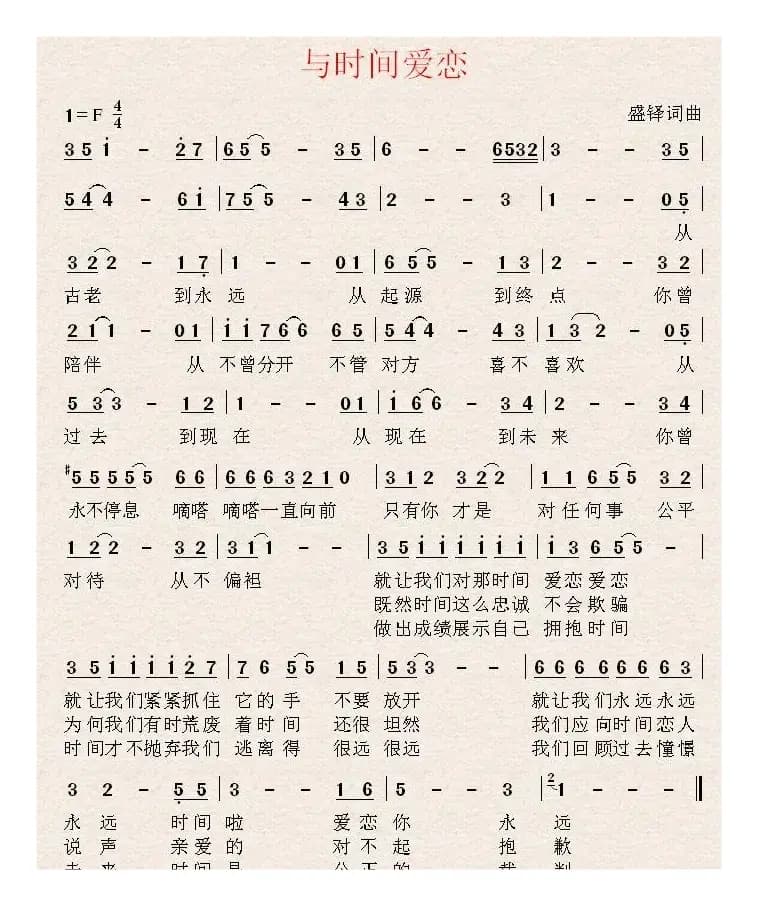 与时间爱恋
1=F 4/4
盛铎词曲
3 5 i - 2 7 | 6 5 5 - 3 5 | 6 - - 6532 | 3 - - 3 5 |
5 4 4 - 6 i | 7 5 5 - 4 3 | 2 - - 3 | 1 - - 0 5 |
从
3 2 2 - 1 7 | 1 - - 0 1 | 6 5 5 - 1 3 | 2 - - 3 2 |
古老 到永 远 从 起源 到终 点 你曾
2 1 1 - 0 1 | i i 7 6 6 6 5 | 5 4 4 - 4 3 | 1 3 2 - 0 5 |
陪伴 从 不曾分开 不管 对方 喜不 喜欢 从
5 3 3 - 1 2 | 1 - - 0 1 | i 6 6 - 3 4 | 2 - - 3 4 |
过去 到现 在 从 现在 到未 来 你曾
#5 5 5 5 5 6 6 | 6 6 6 3 2 1 0 | 3 1 2 3 2 2 | 1 1 6 5 5 3 2 |
永不停息 嘀嗒 嘀嗒一直向前 只有你 才是 对任何事 公平
1 2 2 - 3 2 | 3 1 1 - - | 3 5 i i i i i i | i 3 6 5 5 - |
对待 从不 偏袒 就让我们对那时间 爱恋爱恋
既然时间这么忠诚 不会欺骗
做出成绩展示自己 拥抱时间
3 5 i i i i 2 7 | 7 6 5 5 1 5 | 5 3 3 - - | 6 6 6 6 6 6 6 3 |
就让我们紧紧抓住 它的手 不要 放开 就让我们永远永远
为何我们有时荒废 着时间 还很 坦然 我们应向时间恋人
时间才不抛弃我们 逃离得 很远 很远 我们回顾过去憧憬
3 2 - 5 5 | 3 - - 1 6 | 5 - - 3 | 2 1 - - - ‖
永 远 时间 啦 爱恋 你 永 远
说 声 亲爱 的 对不 起 抱 歉